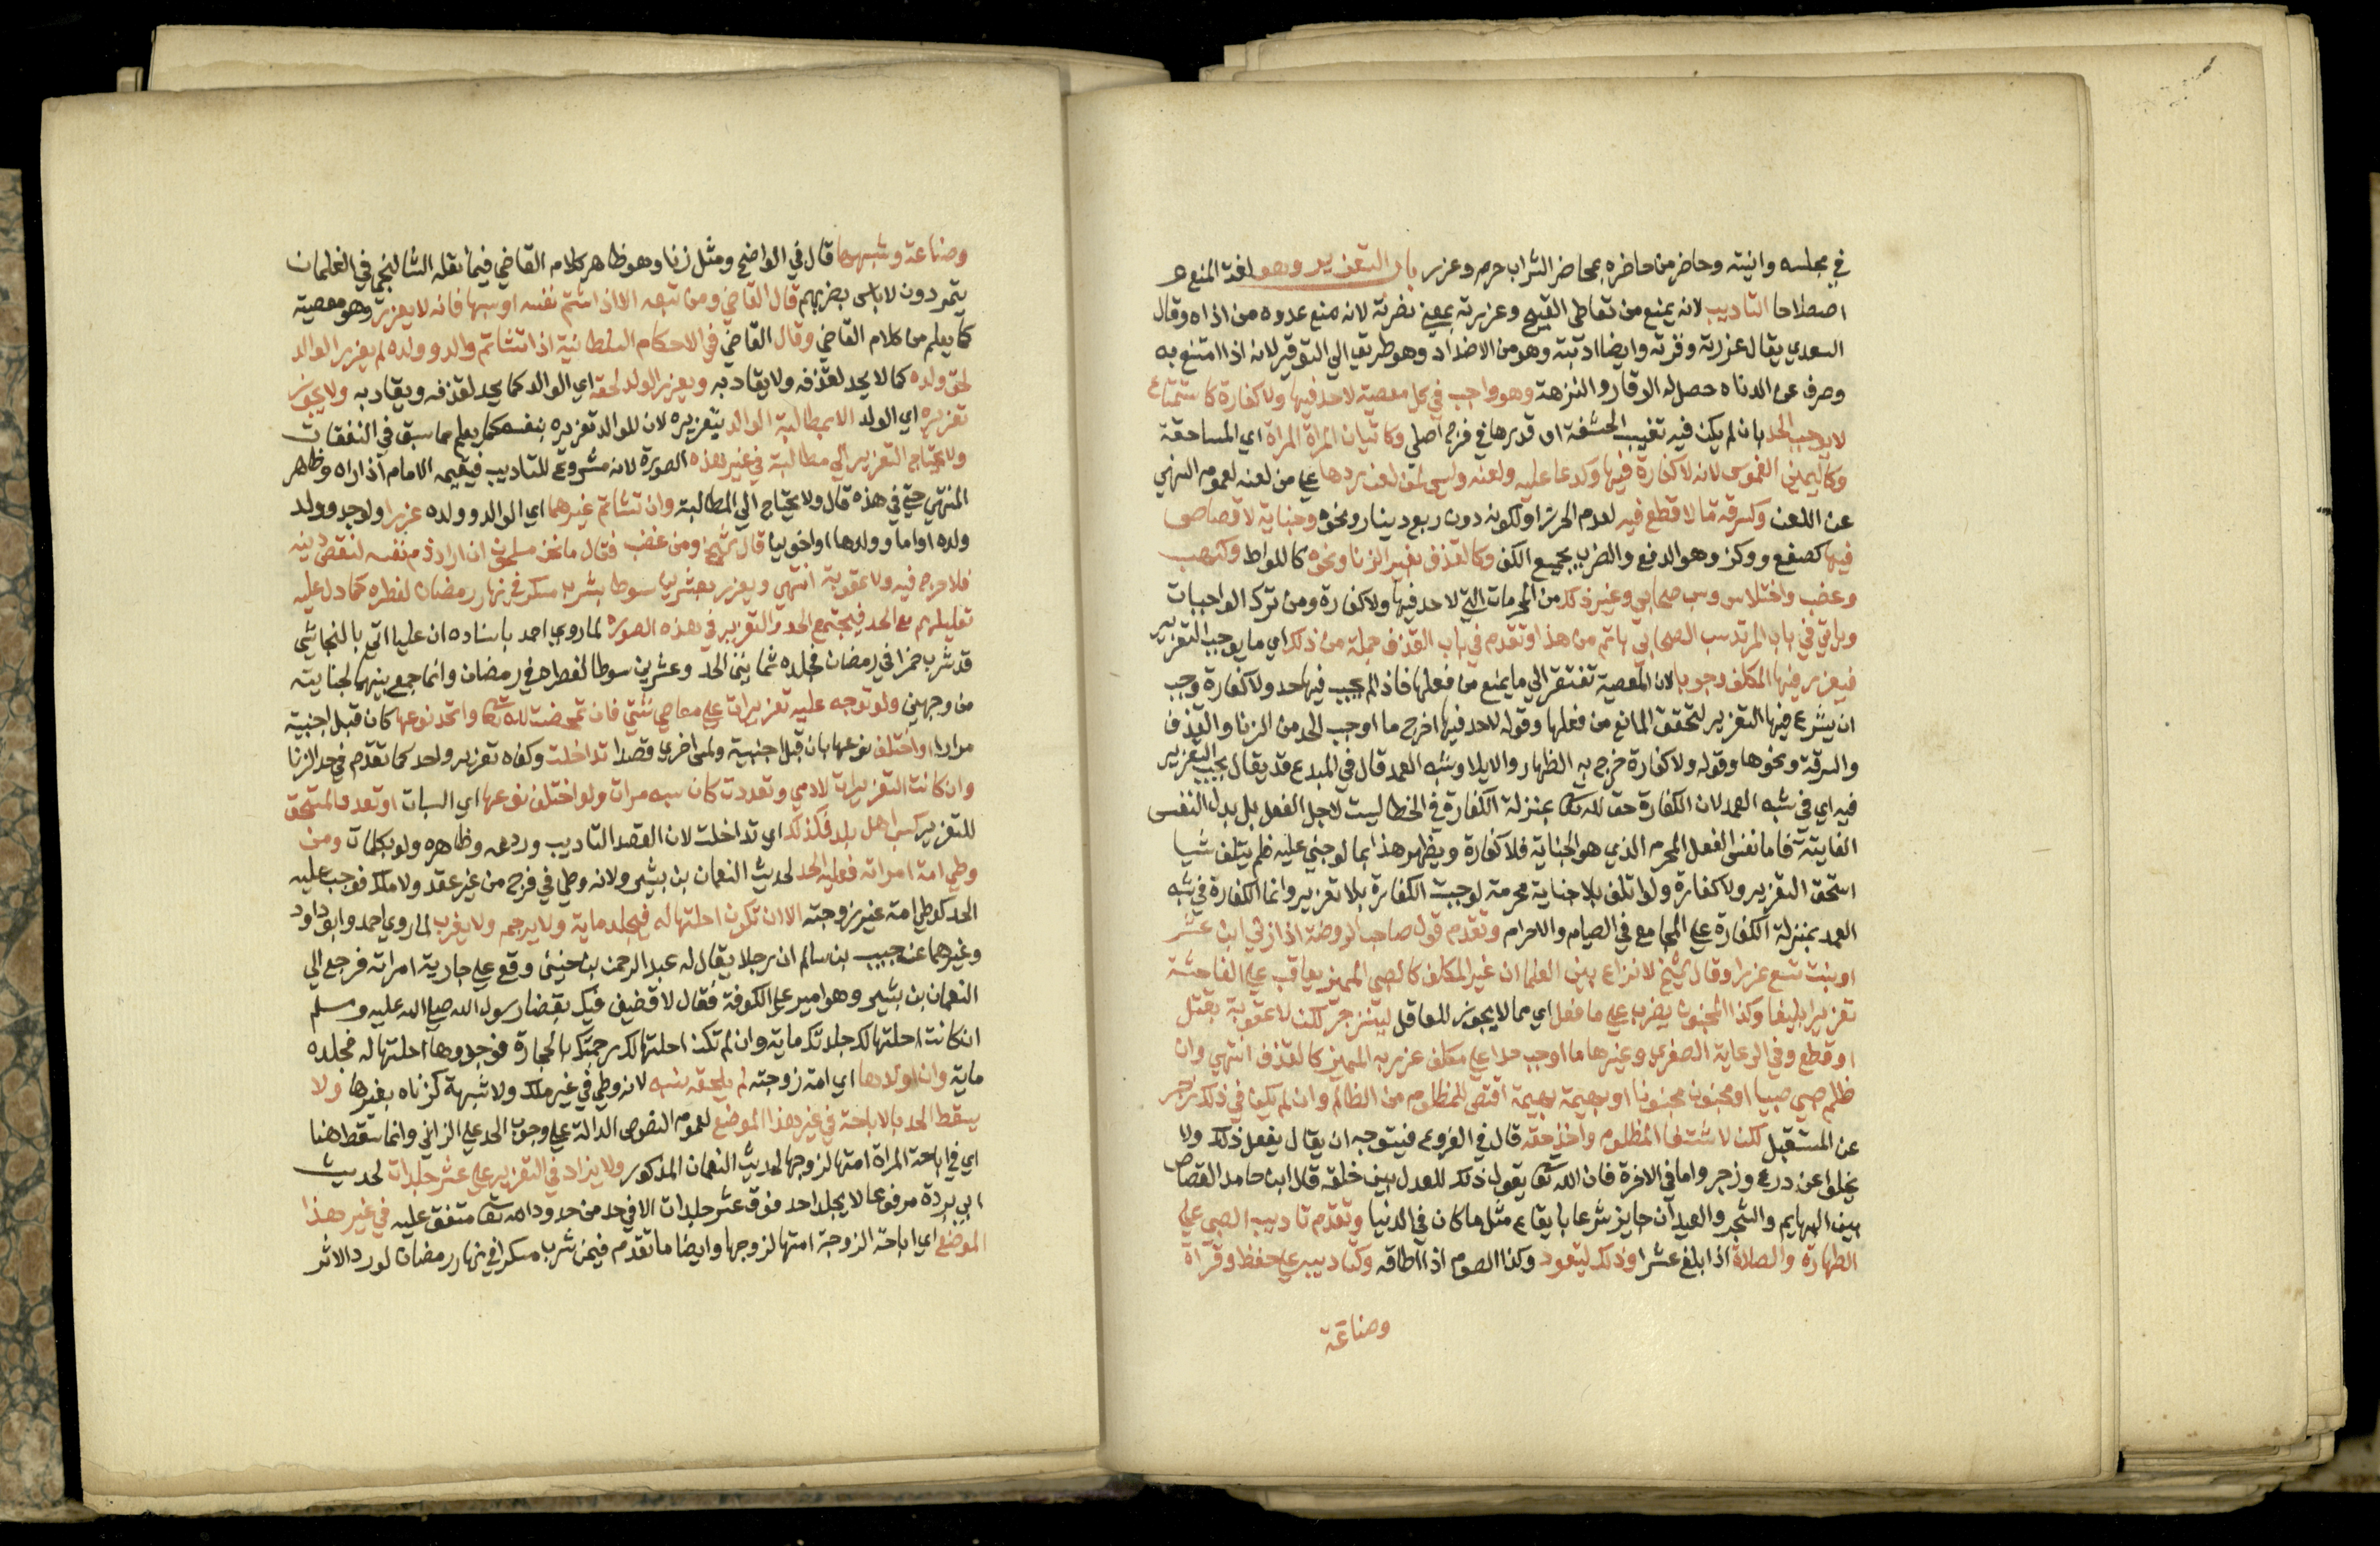 في مجلسه وانيته وحاضر من حاضره بمحاضر الشراب حرم وعزر باب التعزير وهو لغة المنع و
اصطلاحا التاديب لانه يمنع من تعاطي القبيح وعزرته بمعني نصرته لانه منع عدوه من اذاه وقال
السعدي يقال عزرته وقرته وايضا ادبته وهو من الاضداد وهو طريق الي التوقير لانه اذا امتنع به
وصرف عن الدناه حصل له الوقار والنزهة وهو واجب في كل معصية لا حد فيها ولا كفارة كاستمتاع
لا يوجب الحد بان لم يكن فيه تغييب الحشفة او قدرها في فرج اصلي وكاتيان المراة المراة اي المساحقة
وكاليمين الغموس لانه لا كفارة فيها وكدعا عليه ولعنه وليس لمن لعن ردها علي من لعنه لعموم النهي
عن اللعن وكسرقة ما لا قطع فيه لعدم الحرز او لكونه دون ربع دينار ونحوه وجناية لا قصاص
فيها كصفع ووكز وهو الدفع والضرب بجميع الكف وكالقذف بغير الزنا ونحوه كاللواط وكنهب
وغصب واختلاس وسب صحابي وغير ذلك من المحرمات التي لا حد فيها ولا كفارة ومن ترك الواجبات
وياتي في باب المرتد سب الصحابي باتم من هذا وتقدم في باب القذف جملة من ذلك اي ما يوجب التعزير
فيعزر فيها المكلف وجوبا لان المعصية تفتقر الي ما يمنع من فعلها فاذا لم يجب فيها حد ولا كفارة وجب
ان يشرع فيها التعزير لتحقق المانع من فعلها وقوله لا حد فيها اخرج ما اوجب الحد من الزنا والقذف
والسرقة ونحوها وقوله ولا كفارة خرج به الظهار والايلا وشبه العمد قال في المبدع قد يقال يجب التعزير
فيه اي في شبه العمد لان الكفارة حق لله تعا بمنزلة الكفارة في الخطا ليست لاجل الفعل بل بدل النفس
الفايتة فاما نفس الفعل المحرم الذي هو الجناية فلا كفارة ويظهر هذا بما لو جني عليه فلم يتلف شيا
استحق التعزير ولا كفارة ولو اتلف بلا جناية محرمة لوجبت الكفارة بلا تعزير وانما الكفارة في شبه
العمد بمنزلة الكفارة علي المجامع في الصيام والاحرام وتقدم قول صاحب الروضة اذا زني ابن عشر
او بنت تسع عزرا وقال الشيخ لا نزاع بين العلما ان غير المكلف كالصبي المميز يعاقب علي الفاحشة
تعزيرا بليغا وكذا المجنون يضرب علي ما فعل اي مما لا يجوز للعاقل لينزجر لكن لا عقوبة بقتل
او قطع وفي الرعاية الصغري وغيرها ما اوجب حدا علي مكلف عزر به المميز كالقذف انتهي وان
ظلم صبي صبيا او مجنون مجنونا او بهيمة بهيمة اقتص للمظلوم من الظالم وان لم يكن في ذلك زجر
عن المستقبل لكن لاشتفا المظلوم واخذ حقه قال في الفروع فيتوجه ان يقال يفعل ذلك ولا
يخلوا عن ردع وزجر واما في الاخرة فان الله تعا يقول ذلك للعدل بين خلقه قال ابن حامد القصاص
بين البهايم والشجر والعيدان جايز شرعا بايقاع مثل ما كان في الدنيا وتقدم تاديب الصبي علي
الطهارة والصلاة اذا بلغ عشرا وذلك ليتعود وكذا الصوم اذا اطاقه وكتاديبه علي حفظ وقراة
وصناعة
وصناعة وشبهها قال في الواضح ومثل زنا وهو ظاهر كلام القاضي فيما نقله الشالنجي في الغلمان
يتمردون لا باس بضربهم قال القاضي ومن تبعه الا اذا شتم نفسه او سبها فانه لا يعزر وهو معصية
كما يعلم من كلام القاضي وقال القاضي في الاحكام السلطانية اذا تشاتم والد وولده لم يعزر الوالد
لحق ولده كما لا يحد لقذفه ولا يقاد به ويعزر الولد لحقه اي الوالد كما يحد لقذفه ويقاد به ولا يجوز
تعزيره اي الولد الا بمطالبة الوالد بتعزيره لان للوالد تعزيره بنفسه كما يعلم مما سبق في النفقات
ولا يحتاج التعزير الي مطالبة في غير هذه الصورة لانه مشروع للتاديب فيقيمه الامام اذا راه وظاهر
المنتهي حتي في هذه قال ولا يحتاج الي المطالبة وان تشاتم غيرهما اي الوالد وولده عزرا ولو جد وولد
ولده او اما وولدها او اخوين قال الشيخ ومن غضب فقال ما نحن مسلمين ان اراد ذم نفسه لنقص دينه
فلا حرج فيه ولا عقوبة انتهي ويعزر بعشرين سوطا بشرب مسكر في نهار رمضان لفطره كما دل عليه
تعليلهم مع الحد فيجتمع الحد والتعزير في هذه الصورة لما روي احمد باسناده ان عليا اتي بالنجاشي
قد شرب خمرا في رمضان فجلده ثمانين الحد وعشرين سوطا لفطره في رمضان وانما جمع بينهما لجنايته
من وجهين ولو توجه عليه تعزيرات علي معاصي شتي فان تمحضت لله تعا واتحد نوعها كان قبل اجنبية
مرارا او اختلف نوعها بان قبل اجنبية ولمس اخري قصدا تداخلت وكفاه تعزير واحد كما تقدم في حد الزنا
وان كانت التعزيرات لادمي وتعددت كان سبه مرات ولو اختلف نوعها اي السبات او تعدد المستحق
للتعزير كسب اهل بلد فكذلك اي تداخلت لان القصد التاديب وردعه وظاهره ولو بكلمات ومن
وطي امة امراته فعليه الحد لحديث النعمان بن بشير ولانه وطي في فرج من غير عقد ولا ملك فوجب عليه
الحد كوطي امة غير زوجته الا ان تكون احلتها له فيجلد ماية ولا يرجم ولا يغرب لما روي احمد وابو داود
وغيرهما عن حبيب بن سالم ان رجلا يقال له عبد الرحمن بن حنين وقع علي جارية امراته فرجع الي
النعمان بن بشير وهو امير علي الكوفة فقال لاقضين فيك بقضا رسول الله صلي الله عليه وسلم
ان كانت احلتها لك جلدتك ماية وان لم تكن احلتها لك رجمتك بالحجارة فوجدوها احلتها له فجلده
ماية وان اولدها اي امة زوجته لم يلحقه نسبه لانه وطي في غير ملك ولا شبهة كزناه بغيرها ولا
يسقط الحد بالاباحة في غير هذا الموضع لعموم النصوص الدالة علي وجوب الحد علي الزاني وانما سقط هنا
اي في اباحة المراة امتها لزوجها لحديث النعمان المذكور ولا يزاد في التعزير علي عشر جلدات لحديث
ابي بردة مرفوعا لا يجلد احد فوق عشر جلدات الا في حد من حدود الله تعا متفق عليه في غير هذا
الموضع اي اباحة الزوجة امتها لزوجها وايضا ما تقدم فيمن شرب مسكرا في نهار رمضان لورد الاثر